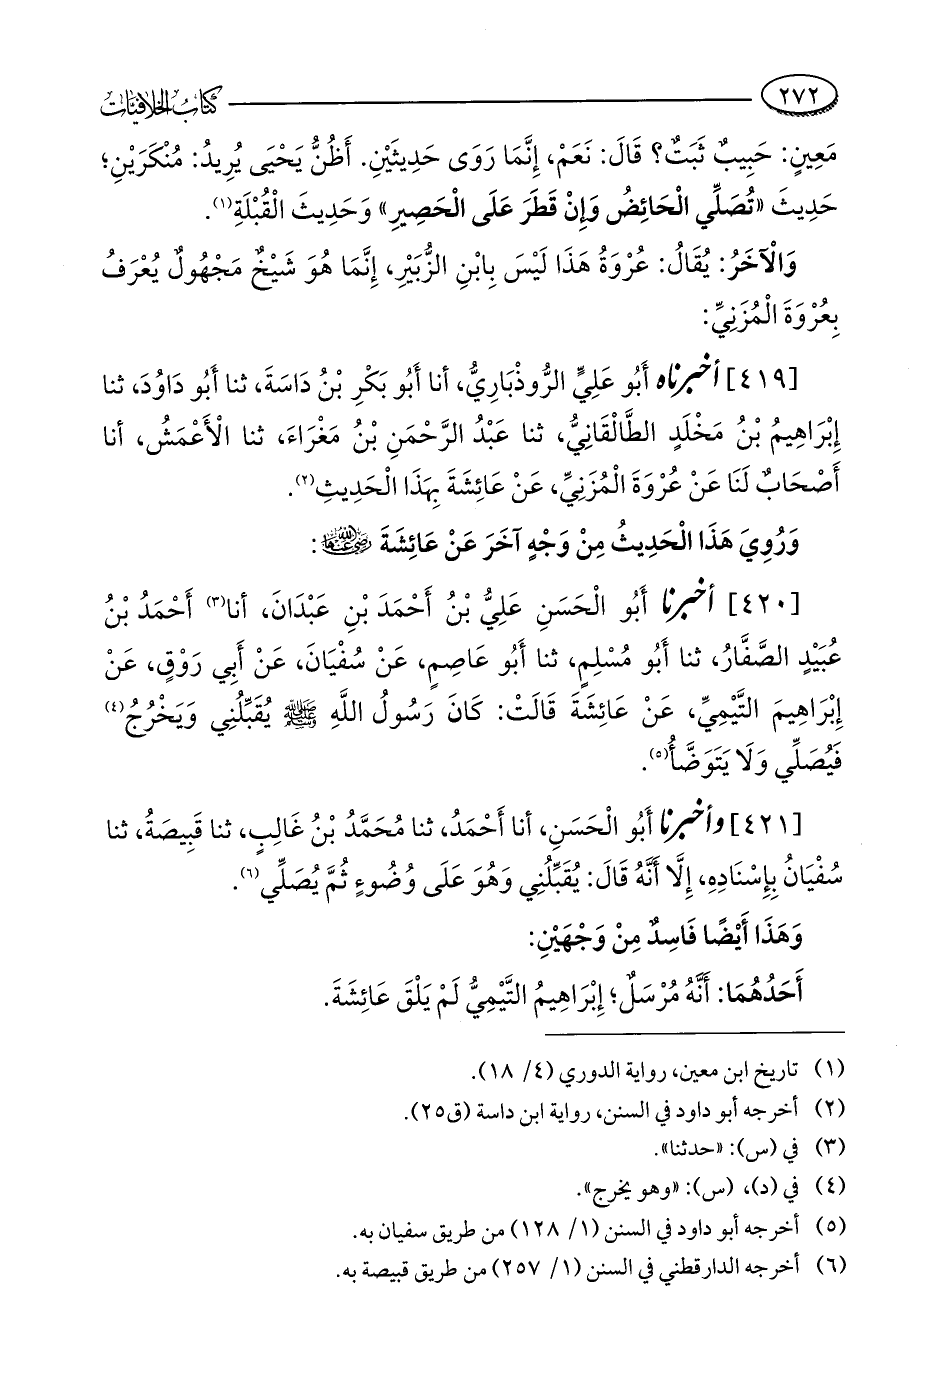 ٢٧٢ كتاب الخلافيات
مَعِينٍ: حَبِيبٌ ثَبَتٌ؟ قَالَ: نَعَمْ، إِنَّمَا رَوَى حَدِيثَيْنِ. أَظُنُّ يَحْيَى يُرِيدُ: مُنْكَرَيْنِ؛
حَدِيثَ «تُصَلِّي الْحَائِضُ وَإِنْ قَطَرَ عَلَى الْحَصِيرِ» وَحَدِيثَ الْقُبْلَةِ(١).
وَالْآخَرُ: يُقَالُ: عُرْوَةُ هَذَا لَيْسَ بِابْنِ الزُّبَيْرِ، إِنَّمَا هُوَ شَيْخٌ مَجْهُولٌ يُعْرَفُ
بِعُرْوَةَ الْمُزَنِيِّ:
[٤١٩] أخبرناه أَبُو عَلِيٍّ الرُّوذْبَارِيُّ، أنا أَبُو بَكْرِ بْنُ دَاسَةَ، ثنا أَبُو دَاوُدَ، ثنا
إِبْرَاهِيمُ بْنُ مَخْلَدٍ الطَّالْقَانِيُّ، ثنا عَبْدُ الرَّحْمَنِ بْنُ مَغْرَاءَ، ثنا الْأَعْمَشُ، أنا
أَصْحَابٌ لَنَا عَنْ عُرْوَةَ الْمُزَنِيِّ، عَنْ عَائِشَةَ بِهَذَا الْحَدِيثِ(٢).
وَرُوِيَ هَذَا الْحَدِيثُ مِنْ وَجْهٍ آخَرَ عَنْ عَائِشَةَ رضي الله عنها:
[٤٢٠] أخبرنا أَبُو الْحَسَنِ عَلِيُّ بْنُ أَحْمَدَ بْنِ عَبْدَانَ، أنا(٣) أَحْمَدُ بْنُ
عُبَيْدٍ الصَّفَّارُ، ثنا أَبُو مُسْلِمٍ، ثنا أَبُو عَاصِمٍ، عَنْ سُفْيَانَ، عَنْ أَبِي رَوْقٍ، عَنْ
إِبْرَاهِيمَ التَّيْمِيِّ، عَنْ عَائِشَةَ قَالَتْ: كَانَ رَسُولُ اللَّهِ ﷺ يُقَبِّلُنِي وَيَخْرُجُ(٤)
فَيُصَلِّي وَلَا يَتَوَضَّأُ(٥).
[٤٢١] وأخبرنا أَبُو الْحَسَنِ، أنا أَحْمَدُ، ثنا مُحَمَّدُ بْنُ غَالِبٍ، ثنا قَبِيصَةُ، ثنا
سُفْيَانُ بِإِسْنَادِهِ، إِلَّا أَنَّهُ قَالَ: يُقَبِّلُنِي وَهُوَ عَلَى وُضُوءٍ ثُمَّ يُصَلِّي(٦).
وَهَذَا أَيْضًا فَاسِدٌ مِنْ وَجْهَيْنِ:
أَحَدُهُمَا: أَنَّهُ مُرْسَلٌ؛ إِبْرَاهِيمُ التَّيْمِيُّ لَمْ يَلْقَ عَائِشَةَ.
(١) تاريخ ابن معين، رواية الدوري (٤/ ١٨).
(٢) أخرجه أبو داود في السنن، رواية ابن داسة (ق٢٥).
(٣) في (س): «حدثنا».
(٤) في (د)، (س): «وهو يخرج».
(٥) أخرجه أبو داود في السنن (١/ ١٢٨) من طريق سفيان به.
(٦) أخرجه الدارقطني في السنن (١/ ٢٥٧) من طريق قبيصة به.